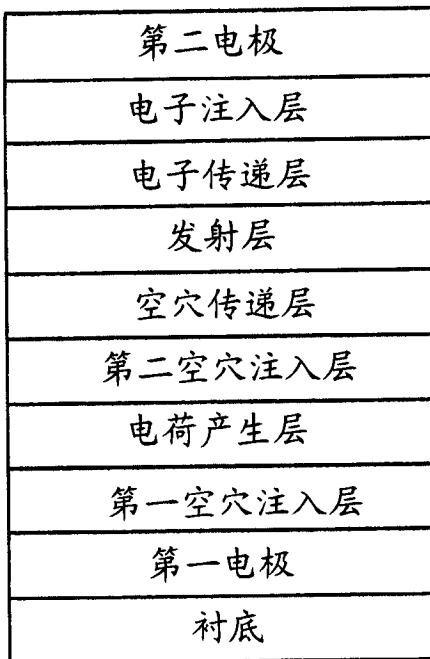 第二电极
电子注入层
电子传递层
发射层
空穴传递层
第二空穴注入层
电荷产生层
第一空穴注入层
第一电极
衬底